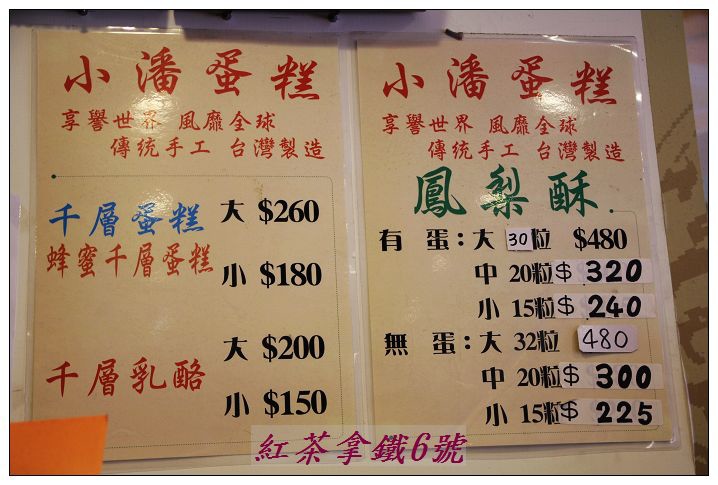 小潘蛋糕
享譽世界 風靡全球
傳統手工 台灣製造
千層蛋糕 大 $260
蜂蜜千層蛋糕 小 $180
千層乳酪 大 $200
小 $150
小潘蛋糕
享譽世界 風靡全球
傳統手工 台灣製造
鳳梨酥
有 蛋：大 30粒 $480
中 20粒 $ 320
小 15粒 $ 240
無 蛋：大 32粒 480
中 20粒 $ 300
小 15粒 $ 225
紅茶拿鐵6號